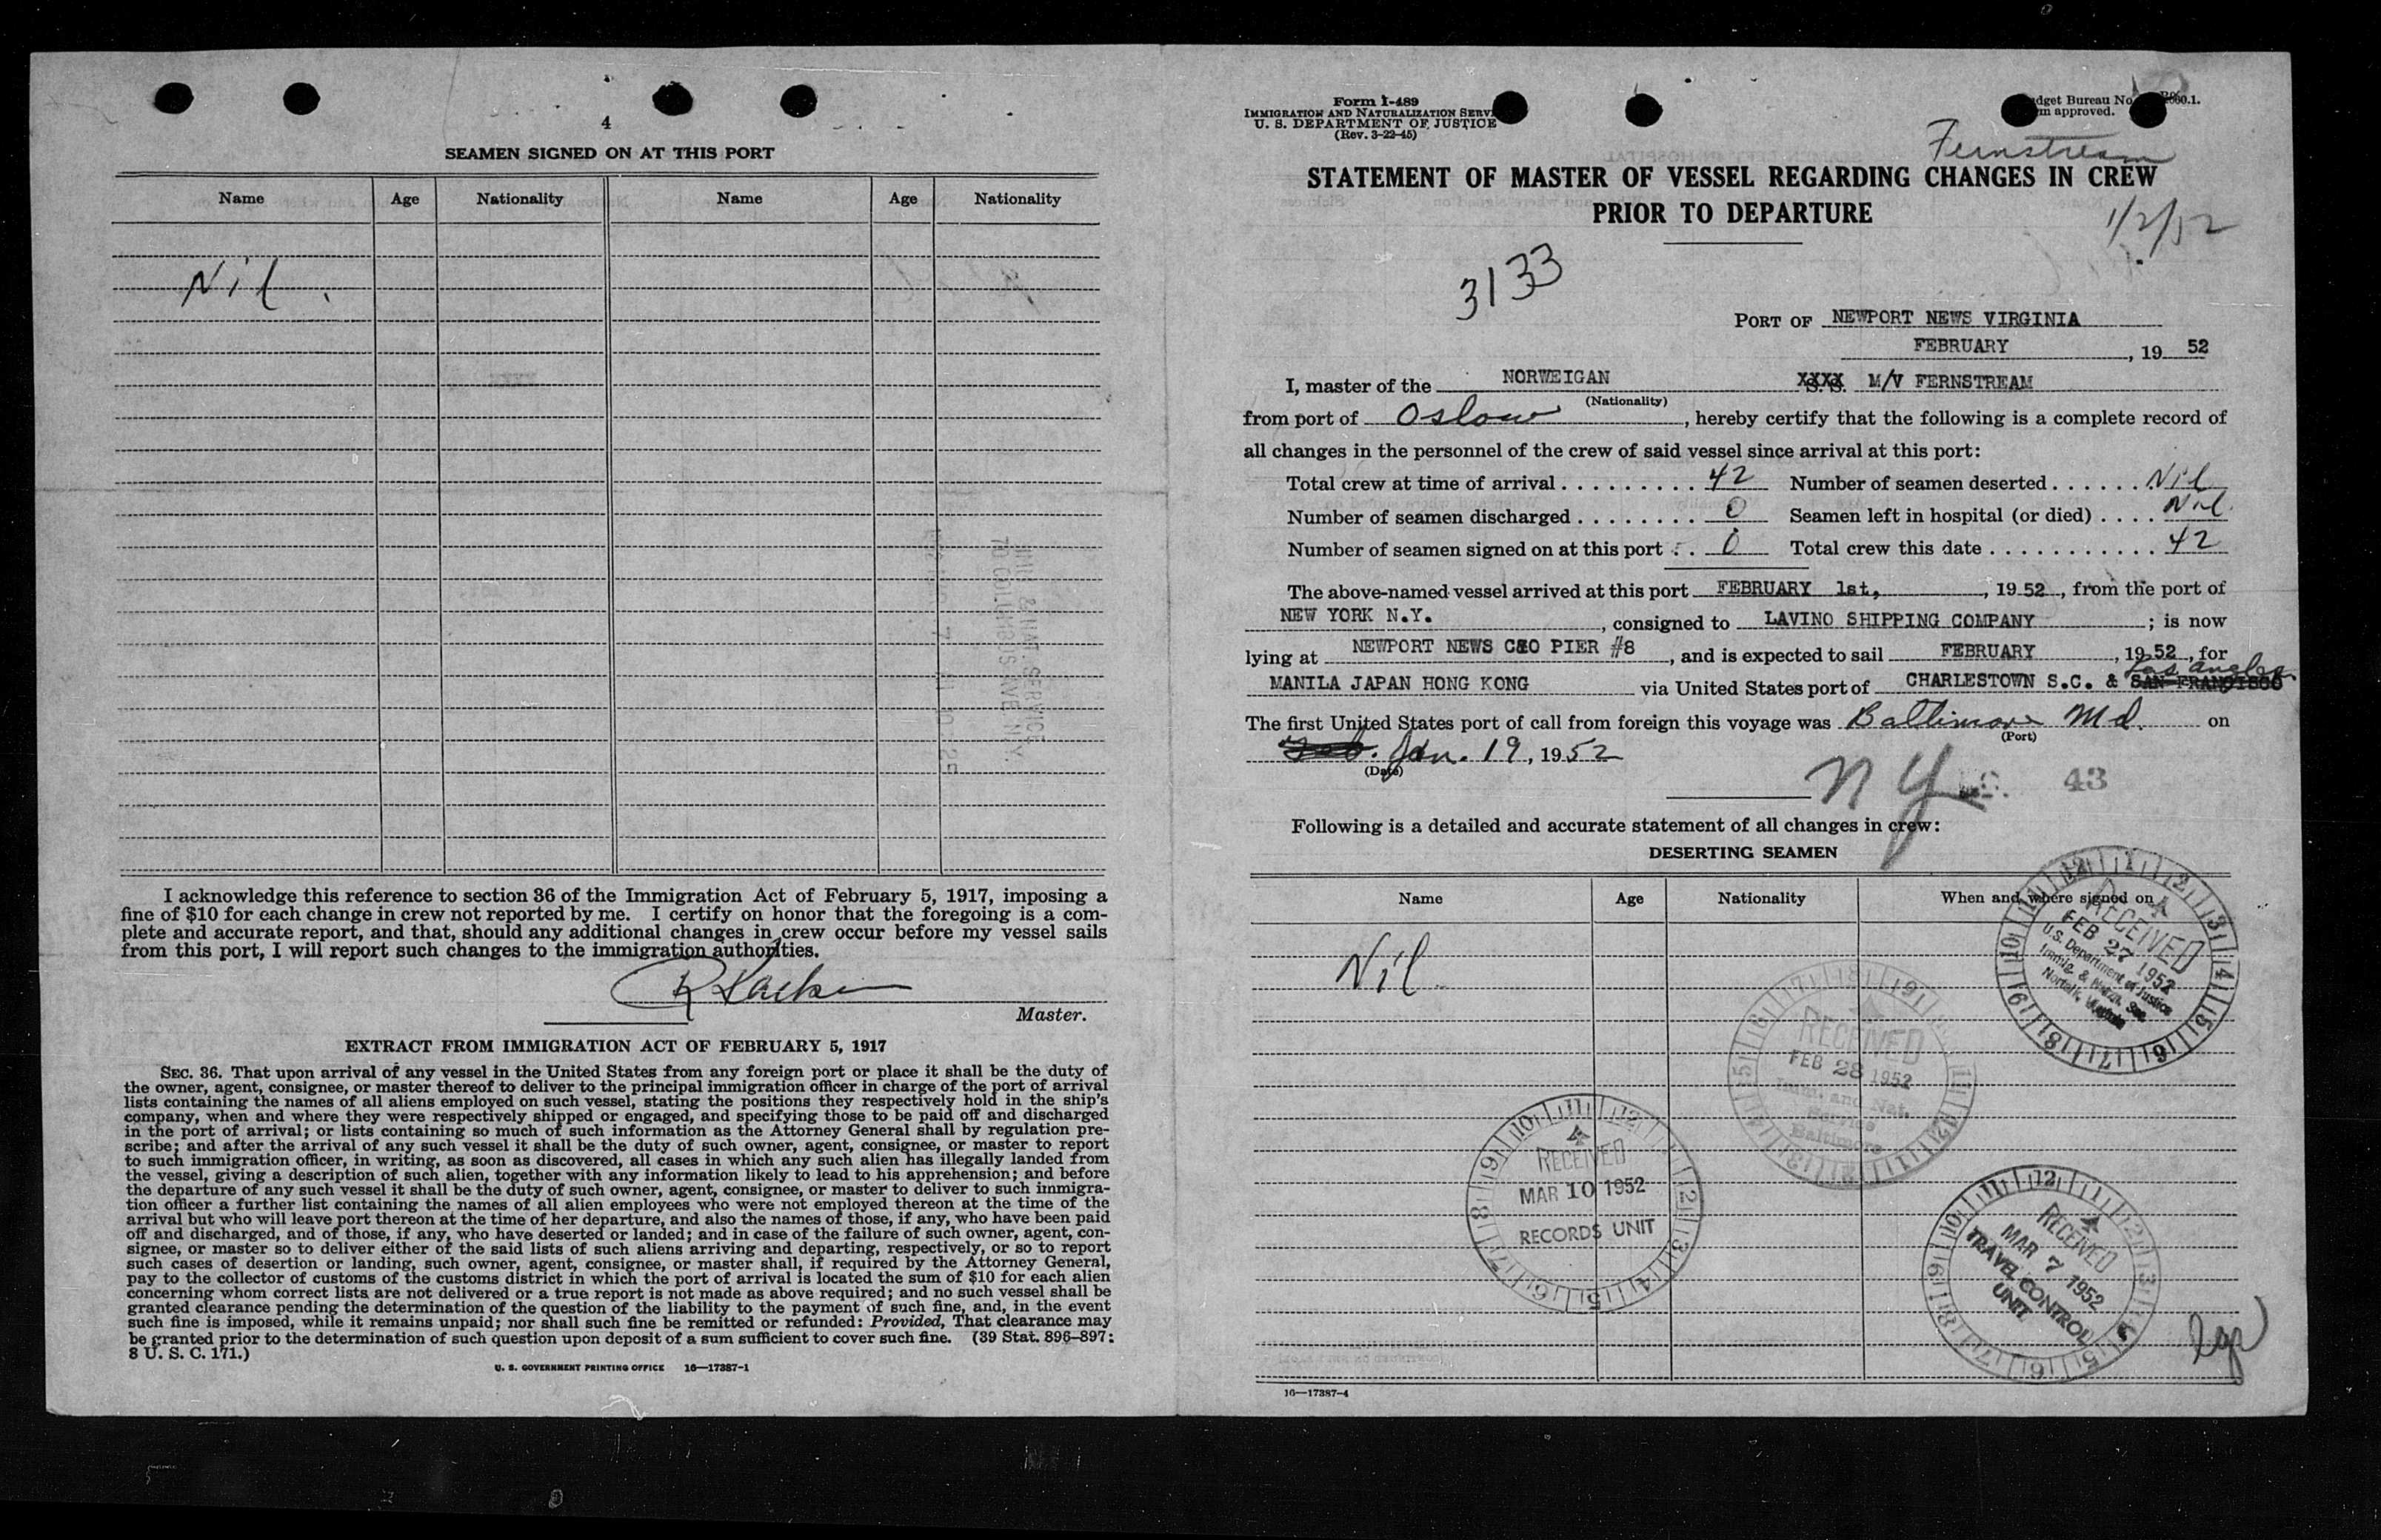 4
SEAMEN SIGNED ON AT THIS PORT
Name Age Nationality Name Age Nationality
Nil.
I acknowledge this reference to section 36 of the Immigration Act of February 5, 1917, imposing a
fine of $10 for each change in crew not reported by me. I certify on honor that the foregoing is a com-
plete and accurate report, and that, should any additional changes in crew occur before my vessel sails
from this port, I will report such changes to the immigration authorities.
Master.
EXTRACT FROM IMMIGRATION ACT OF FEBRUARY 5, 1917
SEC. 36. That upon arrival of any vessel in the United States from any foreign port or place it shall be the duty of
the owner, agent, consignee, or master thereof to deliver to the principal immigration officer in charge of the port of arrival
lists containing the names of all aliens employed on such vessel, stating the positions they respectively hold in the ship's
company, when and where they were respectively shipped or engaged, and specifying those to be paid off and discharged
in the port of arrival; or lists containing so much of such information as the Attorney General shall by regulation pre-
scribe; and after the arrival of any such vessel it shall be the duty of such owner, agent, consignee, or master to report
to such immigration officer, in writing, as soon as discovered, all cases in which any such alien has illegally landed from
the vessel, giving a description of such alien, together with any information likely to lead to his apprehension; and before
the departure of any such vessel it shall be the duty of such owner, agent, consignee, or master to deliver to such immigra-
tion officer a further list containing the names of all alien employees who were not employed thereon at the time of the
arrival but who will leave port thereon at the time of her departure, and also the names of those, if any, who have been paid
off and discharged, and of those, if any, who have deserted or landed; and in case of the failure of such owner, agent, con-
signee, or master so to deliver either of the said lists of such aliens arriving and departing, respectively, or so to report
such cases of desertion or landing, such owner, agent, consignee, or master shall, if required by the Attorney General,
pay to the collector of customs of the customs district in which the port of arrival is located the sum of $10 for each alien
concerning whom correct lists are not delivered or a true report is not made as above required; and no such vessel shall be
granted clearance pending the determination of the question of the liability to the payment of such fine, and, in the event
such fine is imposed, while it remains unpaid; nor shall such fine be remitted or refunded: Provided, That clearance may
be granted prior to the determination of such question upon deposit of a sum sufficient to cover such fine. (39 Stat. 896–897:
8 U. S. C. 171.)
U. S. GOVERNMENT PRINTING OFFICE 16—17387-1
Form I-489
IMMIGRATION AND NATURALIZATION SERVI
U. S. DEPARTMENT OF JUSTICE
(Rev. 3-22-45)
dget Bureau No.
m approved.
Fernstream
STATEMENT OF MASTER OF VESSEL REGARDING CHANGES IN CREW
PRIOR TO DEPARTURE
1/2/52
3133
PORT OF NEWPORT NEWS VIRGINIA
FEBRUARY , 19 52
I, master of the NORWEIGAN XXXX S. S. M/V FERNSTREAM
(Nationality)
from port of Oslow , hereby certify that the following is a complete record of
all changes in the personnel of the crew of said vessel since arrival at this port:
Total crew at time of arrival . . . . . . . . . 42 Number of seamen deserted . . . . . . Nil
Number of seamen discharged . . . . . . . . 0 Seamen left in hospital (or died) . . . . Nil
Number of seamen signed on at this port . . 0 Total crew this date . . . . . . . . . . . . 42
The above-named vessel arrived at this port FEBRUARY 1st, , 19 52 , from the port of
NEW YORK N.Y. , consigned to LAVINO SHIPPING COMPANY ; is now
lying at NEWPORT NEWS C&O PIER #8 , and is expected to sail FEBRUARY , 19 52 , for
Los Angles
MANILA JAPAN HONG KONG via United States port of CHARLESTOWN S.C. & SAN FRANCISCO
The first United States port of call from foreign this voyage was Baltimore Md. on
(Port)
Feb. Jan. 19 , 19 52
(Date)
N Y 43
Following is a detailed and accurate statement of all changes in crew:
DESERTING SEAMEN
Name Age Nationality When and where signed on
Nil.
RECEIVED
FEB 27 1952
U.S. Department of Justice
Immig. & Natzn. Ser.
Norfolk, Virginia
RECEIVED
FEB 28 1952
Imm. and Nat.
Service
Baltimore
RECEIVED
MAR 10 1952
RECORDS UNIT
RECEIVED
MAR 7 1952
TRAVEL CONTROL
UNIT
16—17387-4